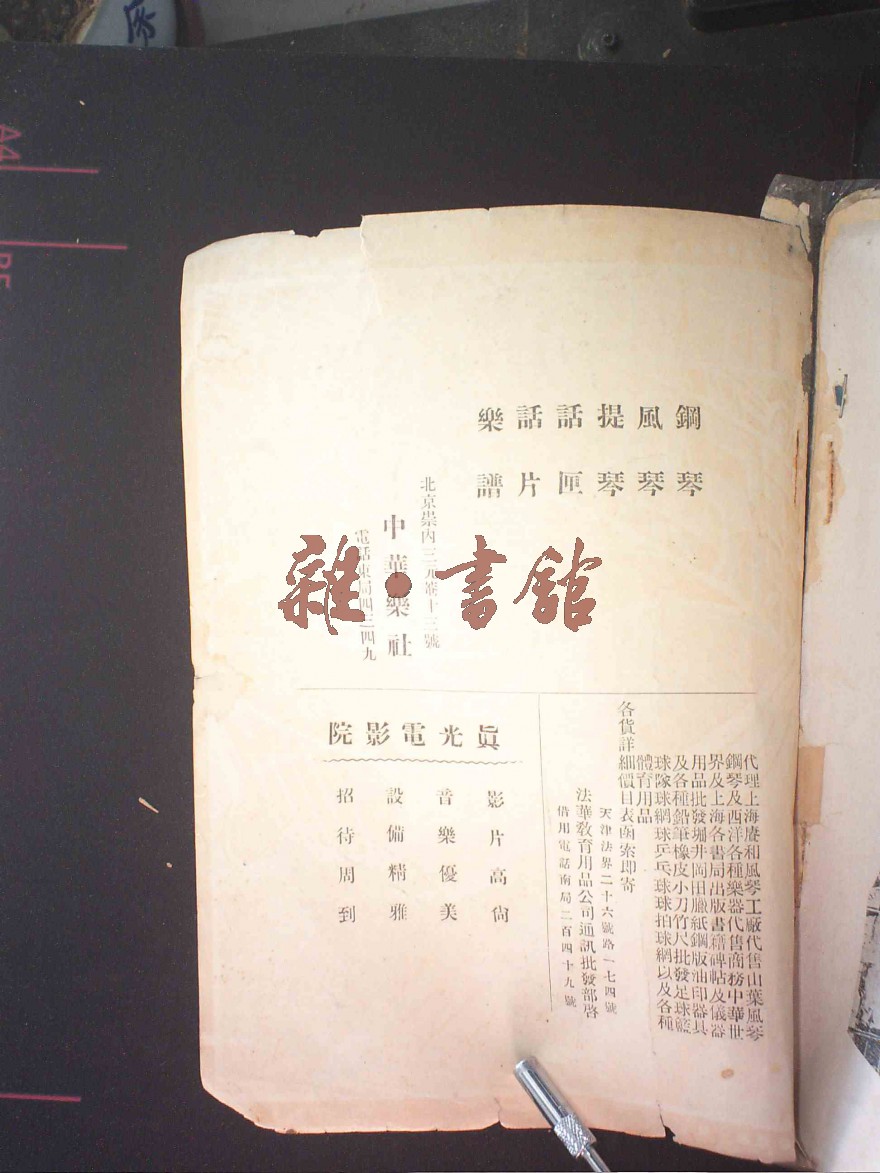 鋼琴
風琴
提琴
話匣
話片
樂譜
北京崇內三元菴十三號
中華樂社
電話東局四三四九
雜·書館
代理上海賡和風琴工廠代售山葉風琴
鋼琴及西洋各種樂器代售商務中華世
界及上海各書局出版書籍碑帖及儀器
用品批發堀井岡田臘紙鋼版油印器具
及各種鉛筆橡皮小刀竹尺批發足球籃
球隊球網球乒乓球球拍球網以及各種
體育用品
各貨詳細價目表函索即寄
天津法界二十六號路一七四號
法華敎育用品公司通訊批發部啓
借用電話南局二百四十九號
眞光電影院
影片高尙
音樂優美
設備精雅
招待周到
A4